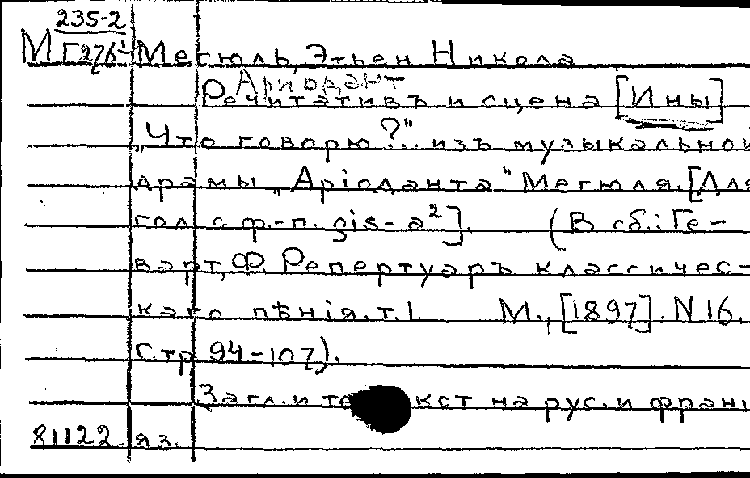 235-2
М Г276² Мегюль, Этьен Никола
Ариодант
Речитативъ и сцена [Ины]
„Что говорю?"... изъ музыкальной
драмы „Аріоданта" Мегюля. [Для
гол. с ф.-п. gis-a²]. (В сб.: Ге-
варт, Ф. Репертуаръ классичес-
каго пѣнія. т. 1 М., [1897]. N 16.
Стр 94-107).
Загл. и текст на рус. и франц
81122 яз.